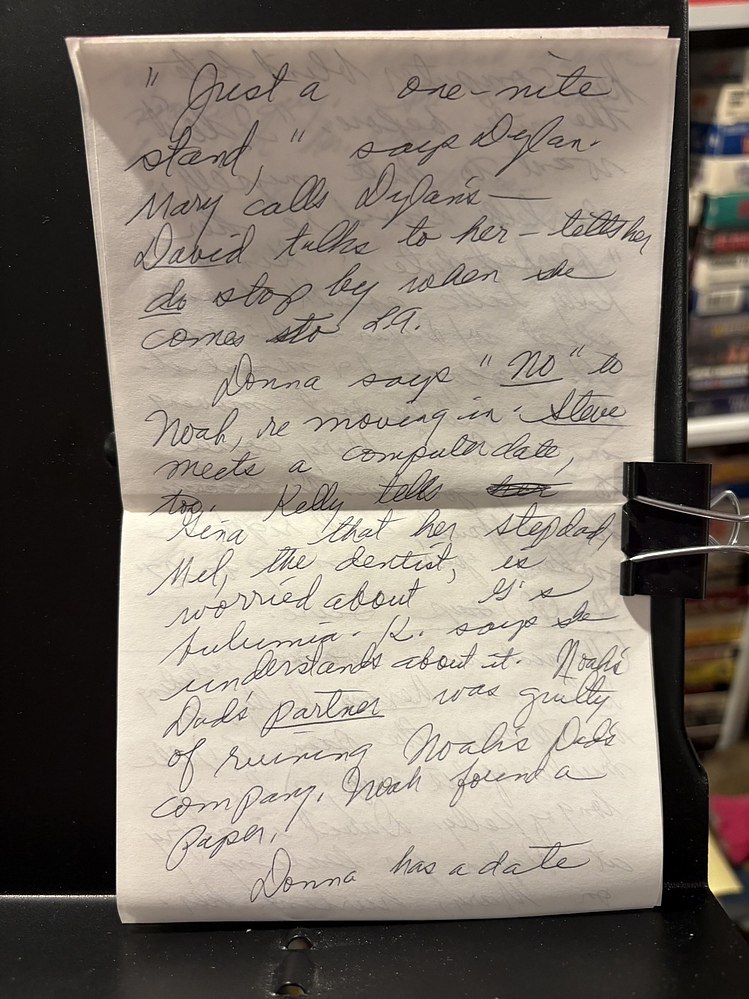 " Just a one-nite
stand, " says Dylan.
Mary calls Dylan's—
David talks to her - tells her
do stop by when she
comes to L.A.
Donna says "No" to
Noah, re moving-in. Steve
meets a computer date,
too. Kelly tells
Gina that her stepdad,
Mel, the dentist, is
worried about G's
bulumia. K. says she
understands about it. Noah's
Dad's partner was guilty
of ruining Noah's Dad's
company. Noah found a
paper.
Donna has a date